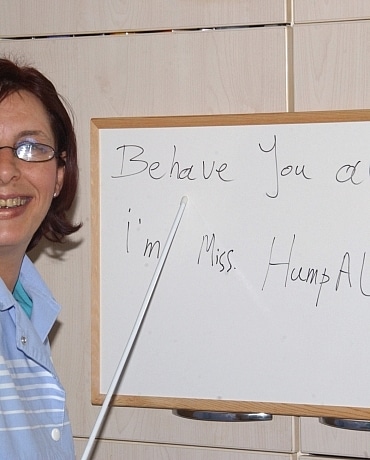 Behave You a
i'm Miss. HumpAL